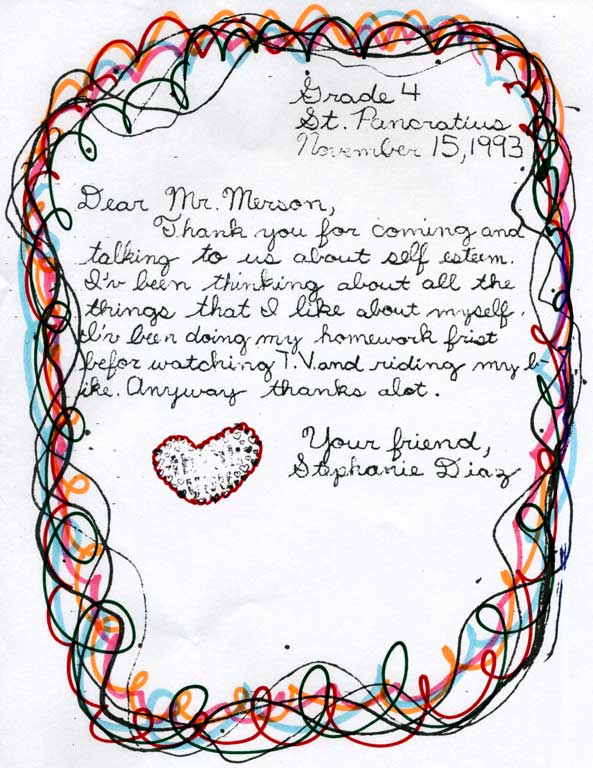 Grade 4
St. Pancratius
November 15, 1993
Dear Mr. Merson,
Thank you for coming and
talking to us about self esteem.
I'v been thinking about all the
things that I like about myself.
I'v been doing my homework frist
befor watching T.V. and riding my b-
ike. Anyway thanks alot.
Your friend,
Stephanie Diaz